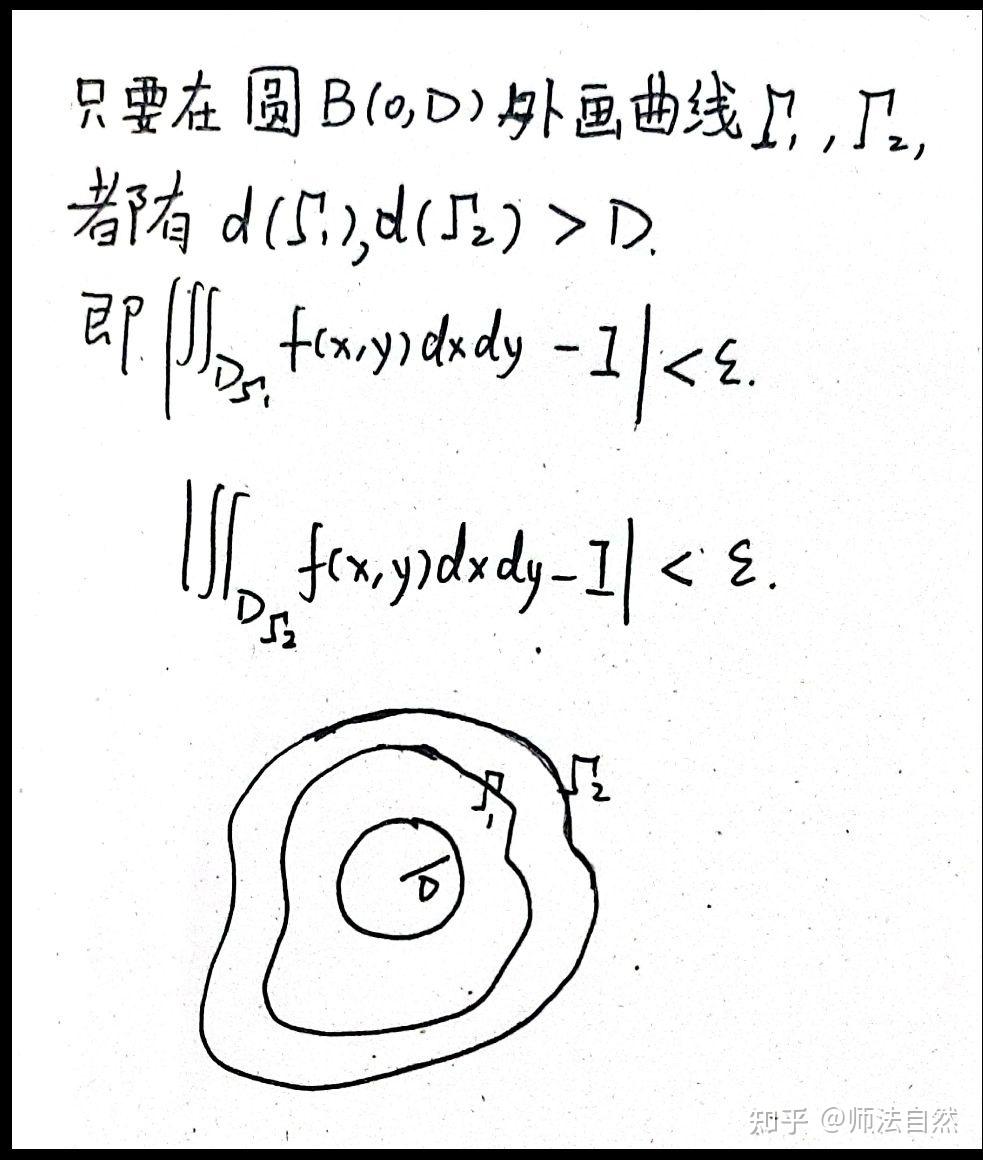 只要在圆B(0,D)外画曲线Γ₁,Γ₂,
都有 d(Γ₁),d(Γ₂) > D.
即 |∬_{D_{Γ₁}} f(x,y)dxdy - I| < ε.
|∬_{D_{Γ₂}} f(x,y)dxdy - I| < ε.
Γ₁ Γ₂
D
知乎 @师法自然